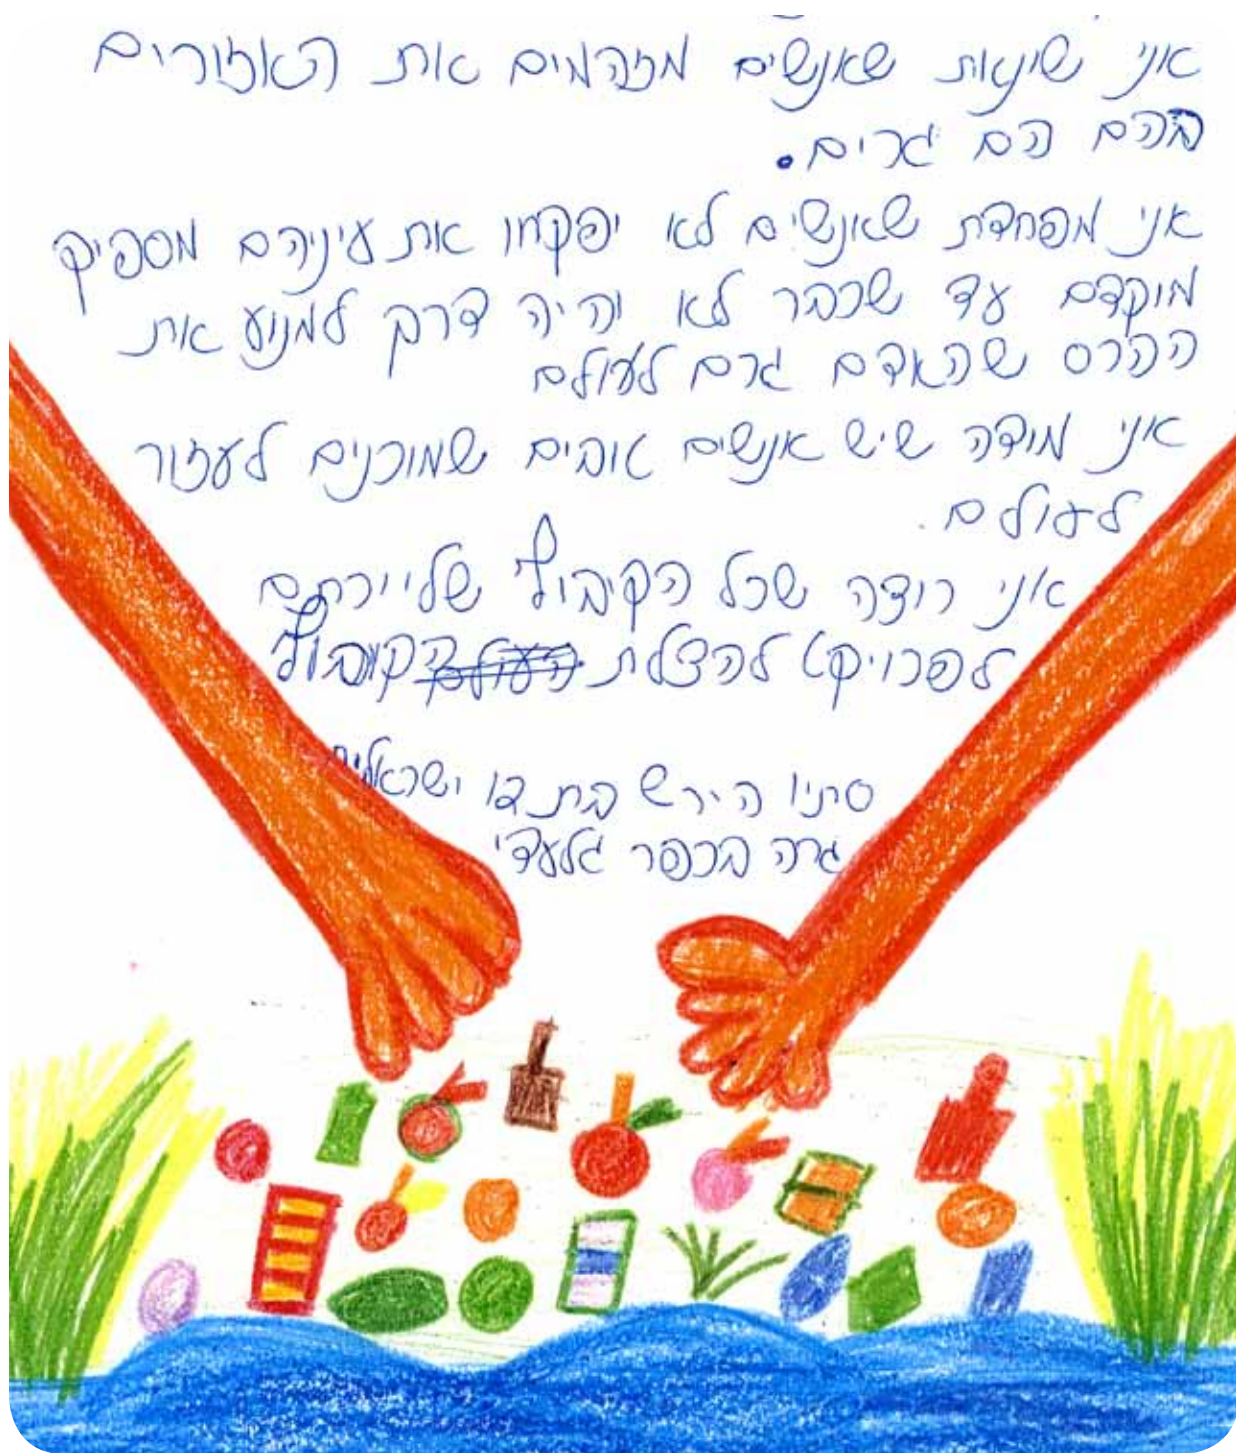 אני שונאת שאנשים מזהמים את האזורים
בהם הם גרים.
אני מפחדת שאנשים לא יפקחו את עיניהם מספיק
מוקדם עד שכבר לא יהיה דרך למנוע את
ההרס שהאדם גרם לעולם
אני מודה שיש אנשים טובים שמוכנים לעזור
לעולם.
אני רוצה שכל הקיבוץ שלי ירתם
לפרויקט להצלת העולם הקיבוץ
סתיו הירש בת 12
גרה בכפר גלעדי